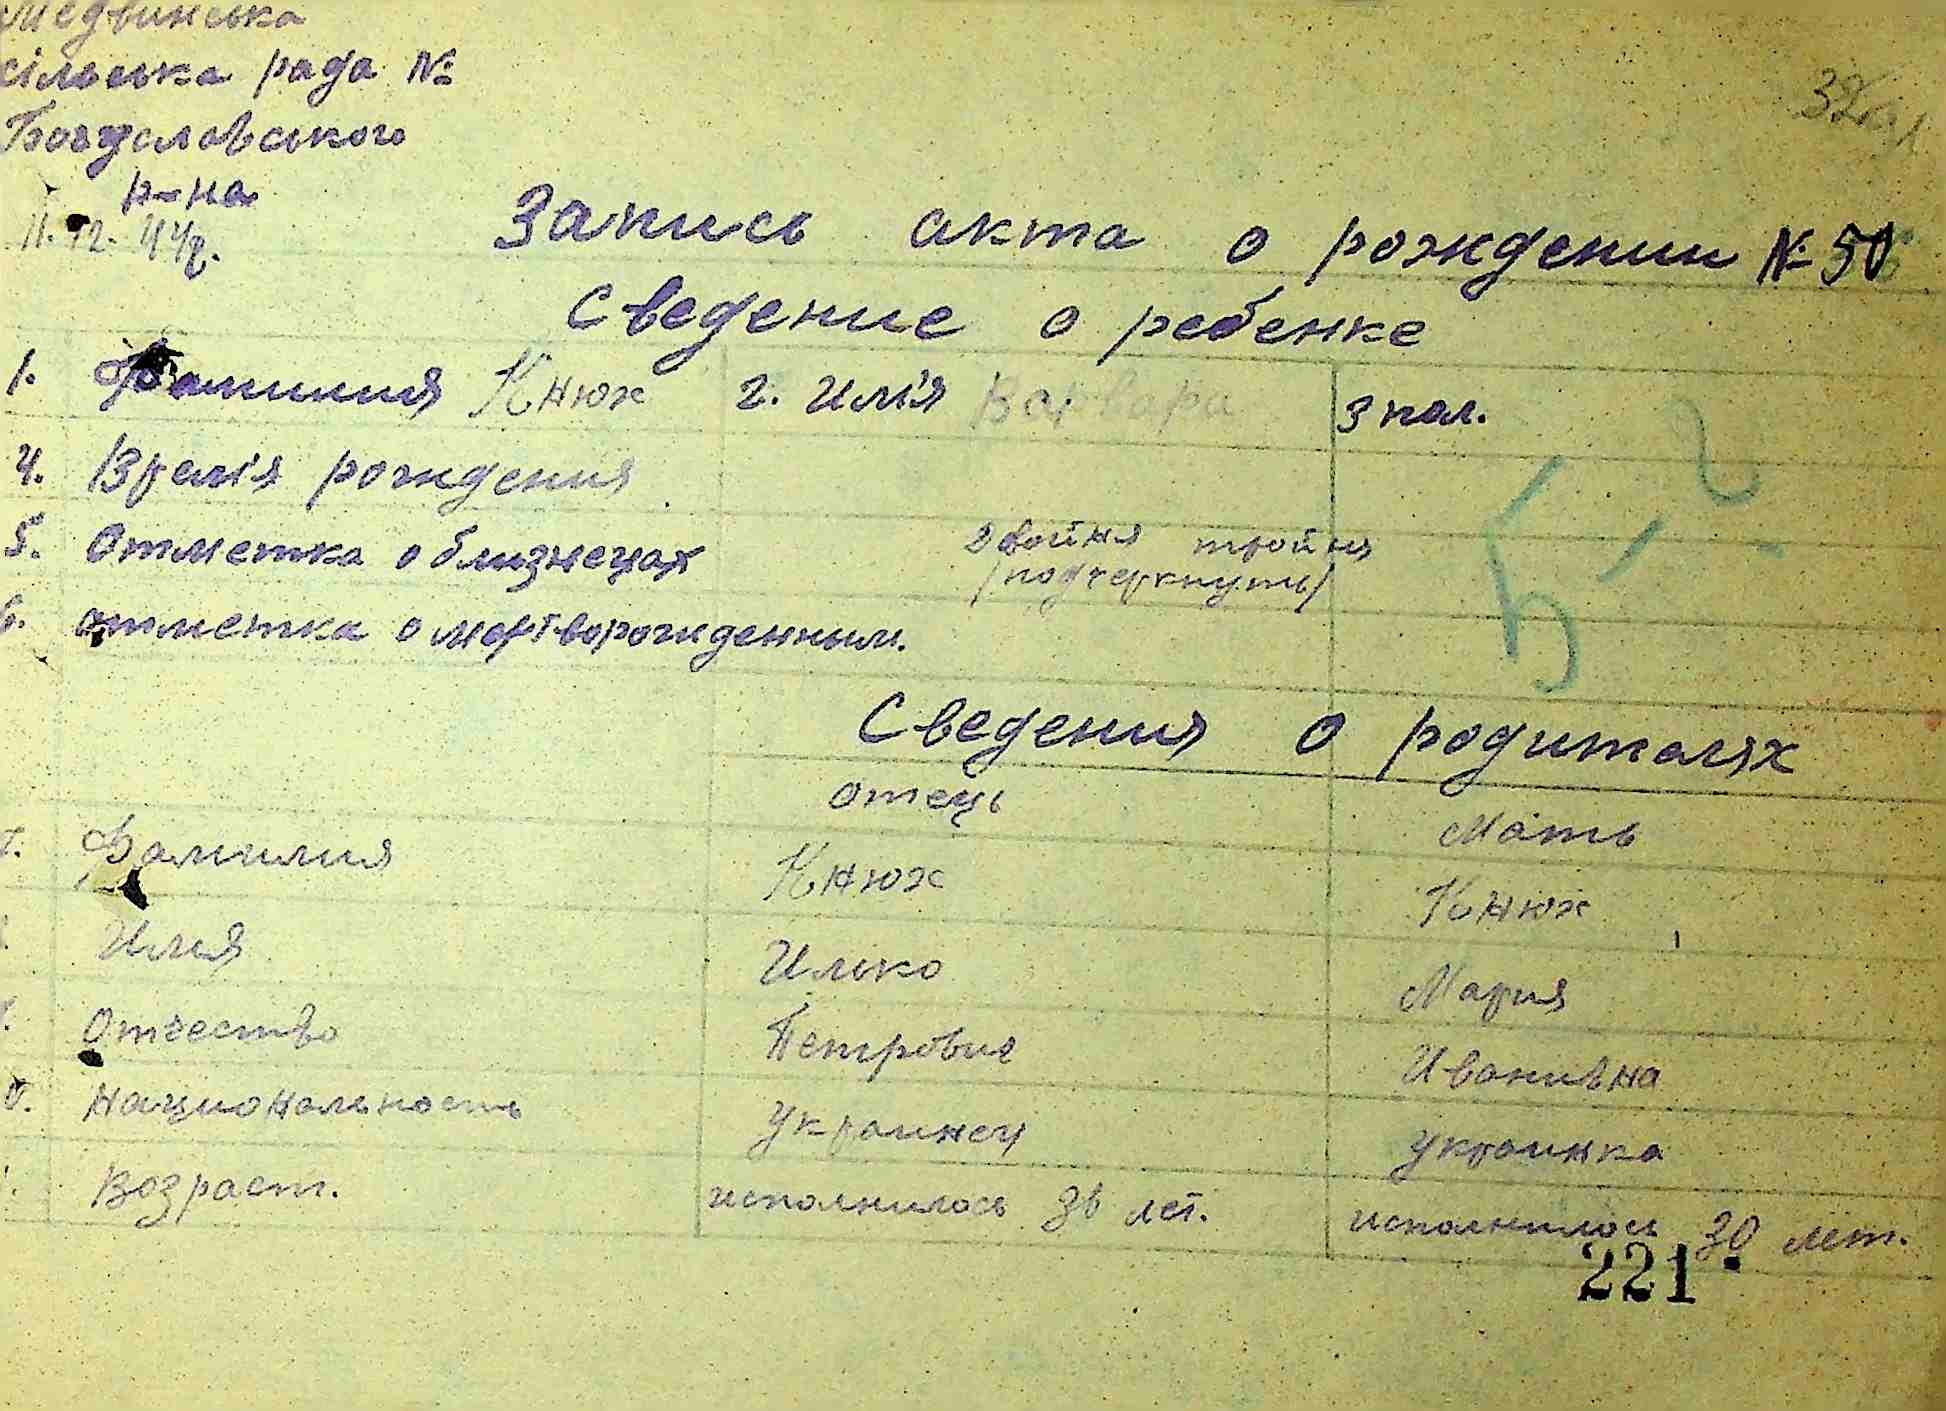 Медвинська
сільська рада №
Богуславського
р-на
11.12.44р.
Запись акта о рождении № 50
Сведение о ребенке
1. Фамилия Кнюх 2. Имя Варвара 3 пол.
4. Время рождения
5. Отметка о близнецах двойня тройня
/подчеркнуть/
6. отметка о мертворожденным.
Сведения о родителях
отець Мать
Фамилия Кнюх Кнюх
Имя Илько Мария
Отчество Петрович Ивановна
Национальность украинец украинка
Возраст. исполнилось 36 лет. исполнилось 30 лет.
221